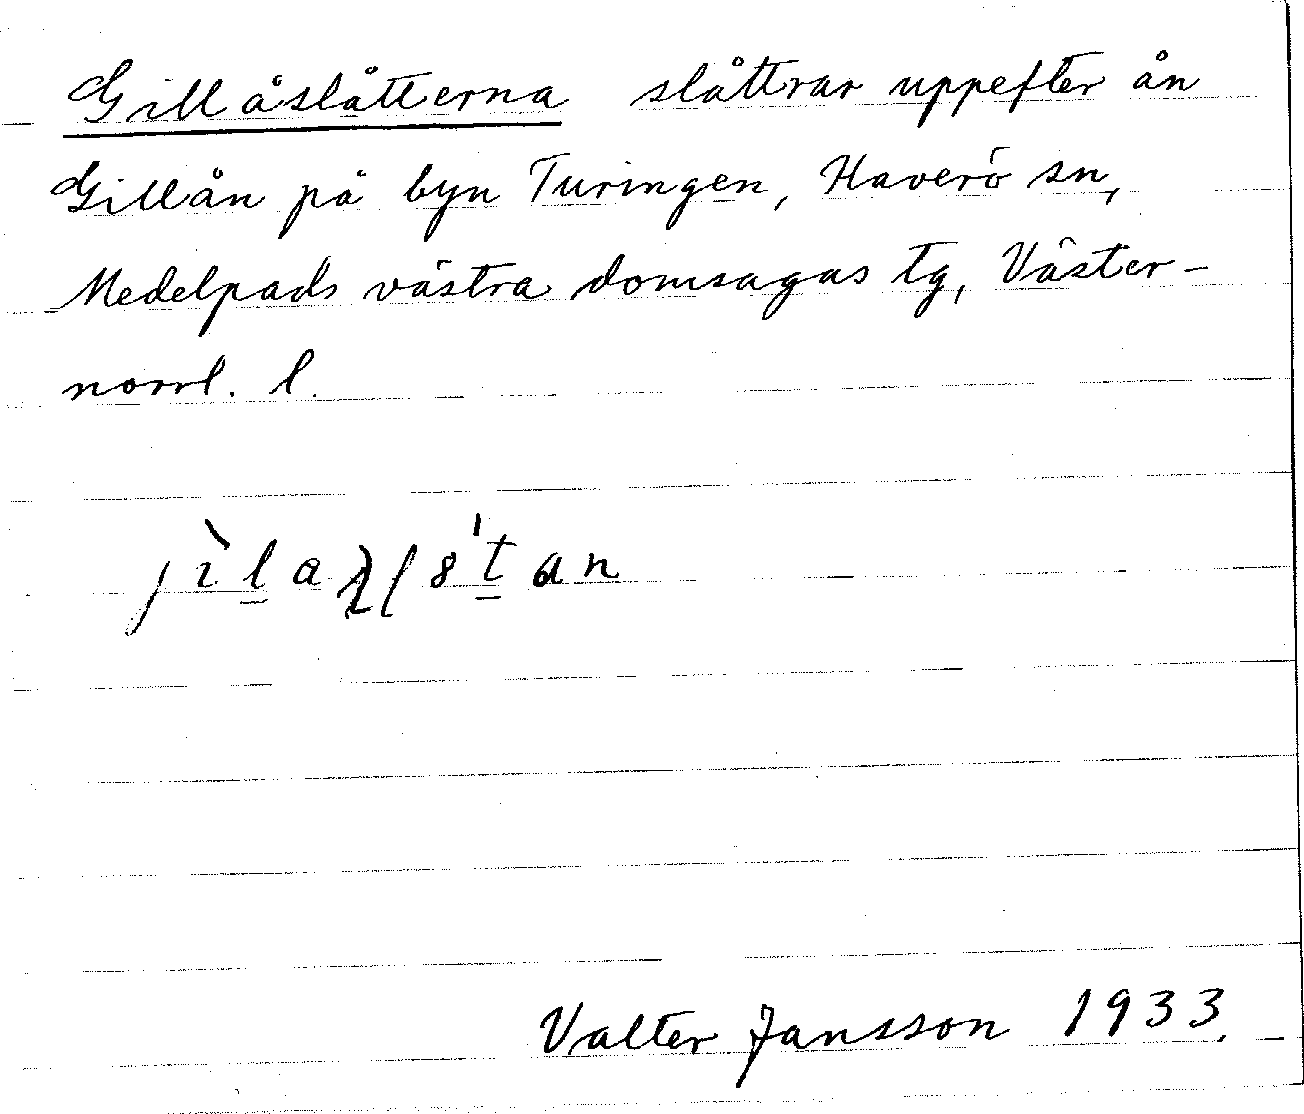 Gillåslåtterna slåttrar uppefter ån
Gillån på byn Turingen, Haverö sn,
Medelpads västra domsagas tg, Väster-
norrl. l.
Valter Jansson 1933.